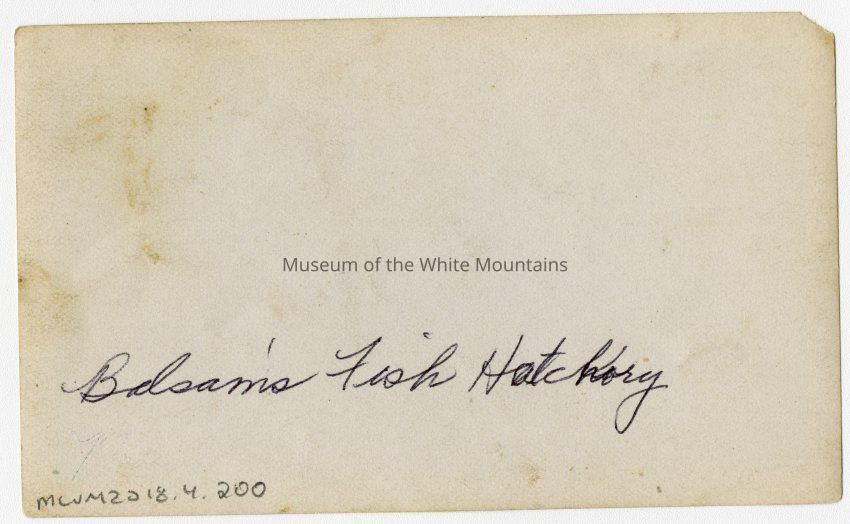 Museum of the White Mountains
Balsam's Fish Hatchory
MWM2018.4.200